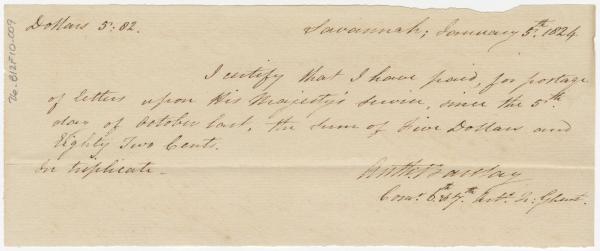 Dollars 5: 82.
Savannah; January 5th. 1824
I certify that I have paid, for postage
of letters upon His Majesty's service, since the 5th.
day of October last, the sum of Five Dollars and
Eighty Two Cents.
In triplicate.
Anth: Barclay
Comr. 6th & 7th Arts. Tr: Ghent.
76.B12F10.009